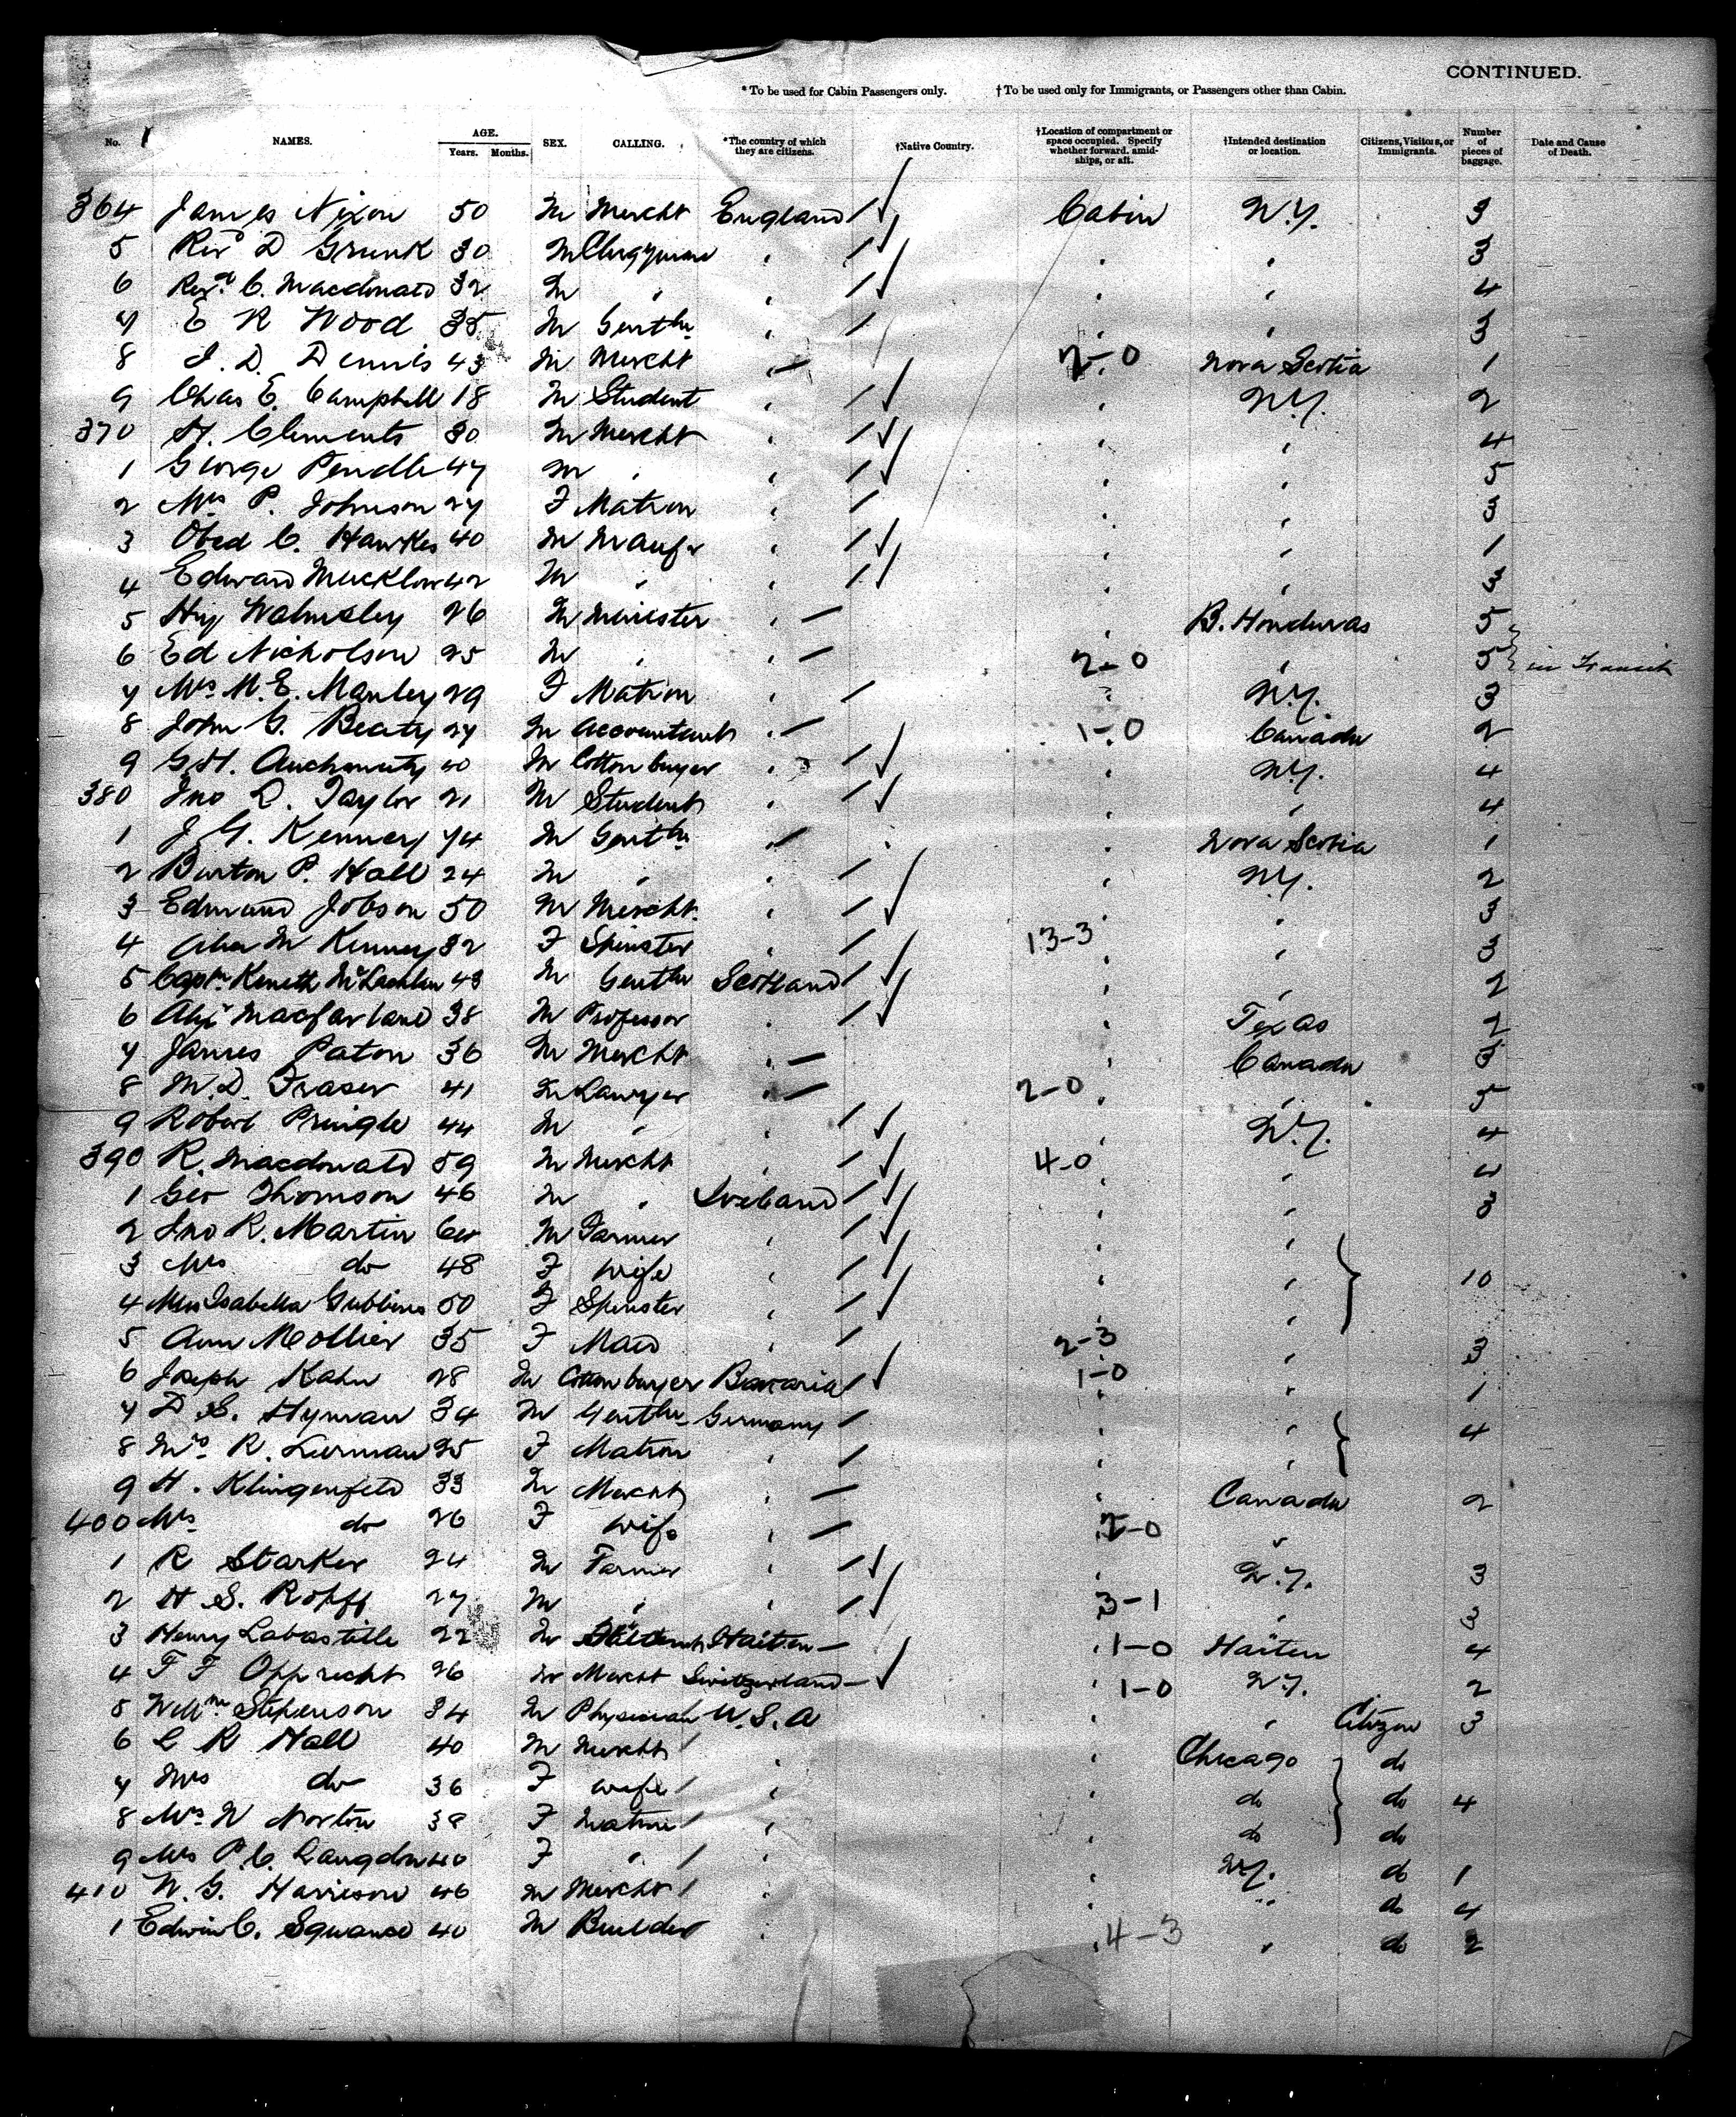 CONTINUED.
* To be used for Cabin Passengers only. † To be used only for Immigrants, or Passengers other than Cabin.
No. NAMES. AGE. Years. Months. SEX. CALLING. *The country of which they are citizens. †Native Country. †Location of compartment or space occupied. Specify whether forward, amidships, or aft. †Intended destination or location. Citizens, Visitors, or Immigrants. Number of pieces of baggage. Date and Cause of Death.
364 James Nixon 50 M Mercht England Cabin N.Y. 3
5 Revd D Grunk 30 M Clergyman " " " 3
6 Revd C. Macdonald 32 M " " " " 4
7 E R Wood 35 M Gentln " " " 3
8 J. D. Dennis 43 M Mercht " 2-0 Nova Scotia 1
9 Chas E. Campbell 18 M Student " " N.Y. 2
370 H. Clements 30 M Mercht " " " 4
1 George Pendle 47 M " " " " 5
2 Mrs P. Johnson 27 F Matron " " " 3
3 Obed C. Hawkes 40 M Manufr " " " 1
4 Edward Mucklow 42 M " " " " 3
5 Hy Walmsley 26 M Minister " " B. Honduras 5
6 Ed Nicholson 25 M " " 2-0 " 5 in Transit
7 Mrs M. E. Manley 29 F Matron " " N.Y. 3
8 John G. Beaty 27 M Accountant " 1-0 Canada 2
9 G. H. Auchmuty 40 M Cotton buyer " " N.Y. 4
380 Jno D. Taylor 21 M Student " " " 4
1 J. G. Kenney 74 M Gentln " " Nova Scotia 1
2 Burton P. Hall 24 M " " " N.Y. 2
3 Edmund Jobson 50 M Mercht. " " " 3
4 M Kenney 32 F Spinster " 13-3 " 3
5 Captn Keneth McLachlan 43 M Gentln Scotland " " 2
6 Alexr Macfarlane 38 M Professor " " Texas 2
7 James Paton 36 M Mercht " " Canada 3
8 M. D. Fraser 41 M Lawyer " 2-0 " 5
9 Robert Pringle 44 M " " " N.Y. 4
390 R. Macdonald 59 M Mercht " 4-0 " 4
1 Geo Thomson 46 M " Ireland " " 3
2 Jno R. Martin 60 M Farmer " " "
3 Mrs do 48 F wife " " " 10
4 Miss Isabella Gubbins 50 F Spinster " " "
5 Ann Mollier 35 F Maid " 2-3 " 3
6 Joseph Kahn 28 M Cotton buyer Bavaria 1-0 " 1
7 D. S. Hyman 34 M Gentln Germany " " 4
8 Mrs R. Lurman 25 F Matron " " "
9 H. Klingenfeld 33 M Mercht " " Canada 2
400 Mrs do 26 F wife " 2-0 "
1 R Starker 24 M Farmer " " N.Y. 3
2 H. S. Ropff 27 M " " 3-1 " 3
3 Henry Labastille 22 M Haitien 1-0 Haïten 4
4 F F Opprecht 26 M Mercht Switzerland 1-0 N.Y. 2
5 Willm Stephenson 34 M Physician U.S.A " " Citizen 3
6 C R Hall 40 M Mercht " " Chicago do
7 Mrs do 36 F wife " do do 4
8 Mrs N Norton 38 F Matron " " do do
9 Mrs P. C. Langdon 40 F " " " N.Y. do 1
410 N. G. Harrison 46 M Mercht " " " do 4
1 Edwin C. Squance 40 M Builder " 4-3 " do 2